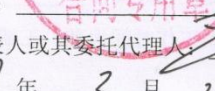 合同专用章
人或其委托代理人:
年 2 月